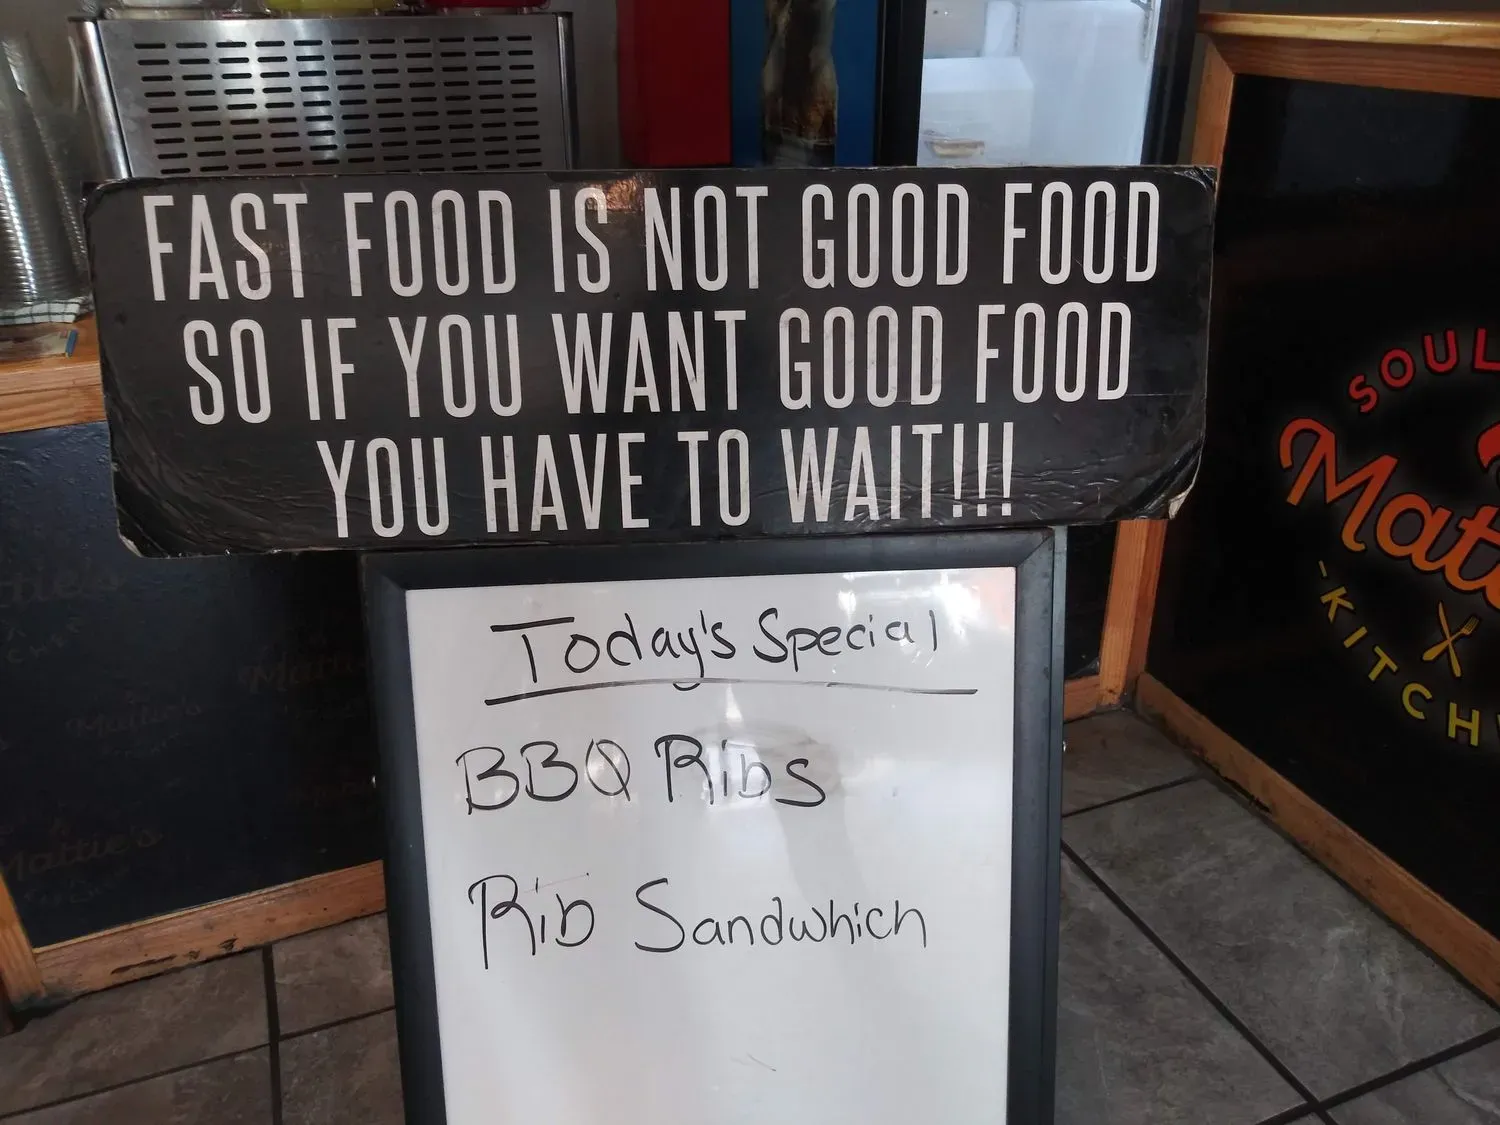 FAST FOOD IS NOT GOOD FOOD
SO IF YOU WANT GOOD FOOD
YOU HAVE TO WAIT!!!
Today's Special
BBQ Ribs
Rib Sandwhich
SOUL
Mattie's
Mattie's